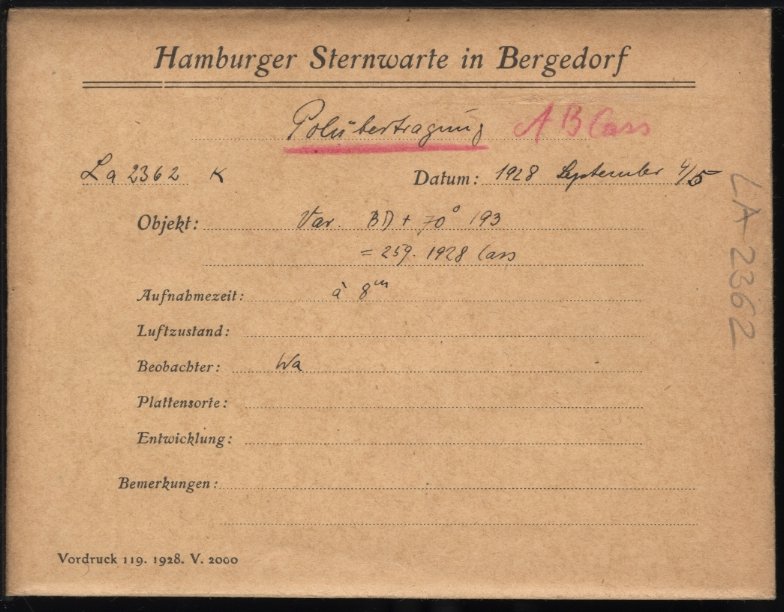 Hamburger Sternwarte in Bergedorf
Polübertragung AB Cass
La 2362 K Datum: 1928 September 4/5
Objekt: Var. BD + 70° 193
= 259. 1928 Cass
Aufnahmezeit: à 8ᵐ
Luftzustand:
Beobachter: Wa
Plattensorte:
Entwicklung:
Bemerkungen:
Vordruck 119. 1928. V. 2000
LA 2362